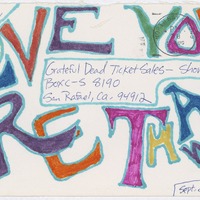 OVE YOU
Grateful Dead Ticket Sales - Show
Box C-S 8190
San Rafael, Ca. 94912
RE THA
Sept.